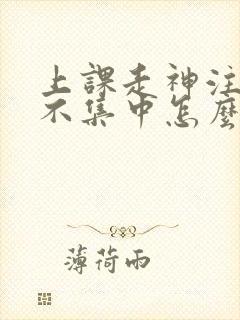 上課走神注
不集中怎麼
薄荷雨